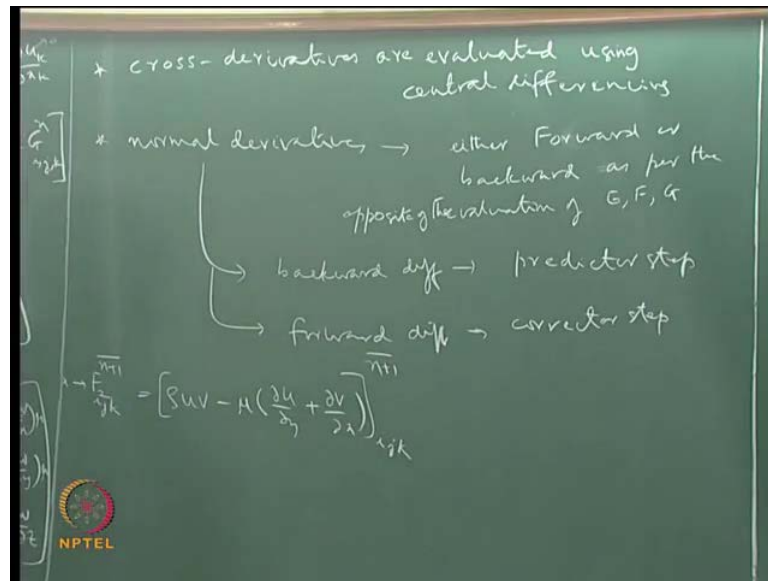 * cross-derivatives are evaluated using
central differencing
* normal derivatives → either Forward or
backward as per the
opposite of the evaluation of E, F, G
→ backward diff → predictor step
→ forward diff → corrector step
F₂ᵢⱼₖ^{\overline{n+1}} = [ρuv - μ(∂u/∂y + ∂v/∂x)]ᵢⱼₖ^{\overline{n+1}}
NPTEL